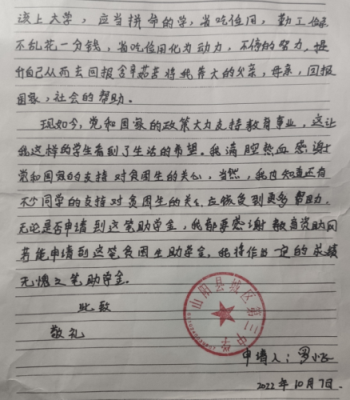 读上大学，应当拼命的学，省吃俭用，勤工俭
不乱花一分钱，省吃俭用化为动力，不停的努力，提
升自己从而去回报含辛茹苦将我养大的父亲，母亲，回报
国家，社会的帮助。
现如今，党和国家的政策大力支持教育事业，这让
我这样的学生看到了生活的希望。我满腔热血感谢
党和国家的支持对贫困生的关心，当然，我也知道还有
不少同学的支持对贫困生的关心应恢复到更多帮助，
无论是否申请到这笔助学金，我都要感谢教育资助
若能申请到这笔贫困生助学金，我将作出一定的成绩
无愧之笔助学金。
此致
敬礼
山阳县城区第三中学
申请人：罗小
2022年10月7日